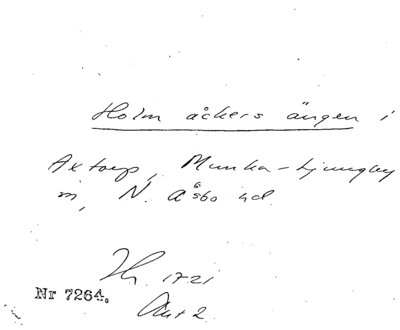 Holm åkers ängen i
Axtorp, Munka-Ljungby
sn, N. Åsbo hd.
Hr. 1721
Nr 7264.
Akt 2